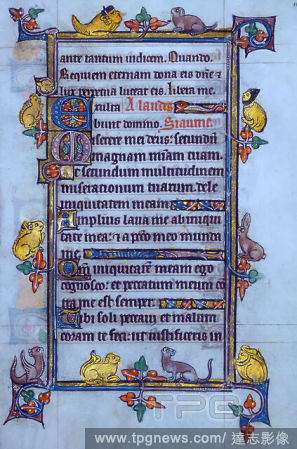 ante tantum iudicem. Quando.
Requiem eternam dona eis dñe &
lux perpetua luceat eis. Libera me.
A laudes
bunt domino.
serere mei deus: secundū
magnam miām tuam.
Et secundum multitudinem
miserationum tuarum. dele
iniquitatem meam
Amplius laua me ab iniqui
tate mea: & a peccō meo munda
me.
Qm̄ iniquitatem meam ego
cognosco: et peccatum meum cō
tra me est semper.
Tibi soli peccaui et malum
coram te feci: ut iustificeris in
TPG
www.tpgnews.com/ 達志影像